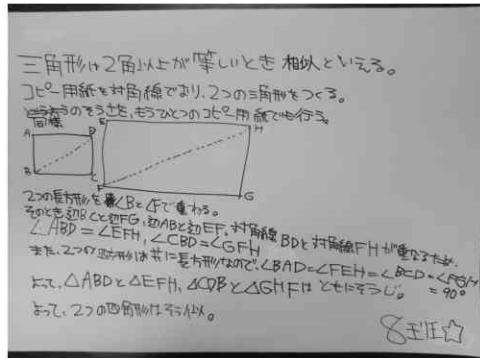 三角形は2角以上が等しいとき 相似といえる。
コピー用紙を対角線でおり、2つの三角形をつくる。
同様のそうさを、もうひとつのコピー用紙でも行う。
A D E H
B C F G
2つの長方形を ∠Bと∠Fで重ねる。
そのとき辺BCと辺FG、辺ABと辺EF、対角線BDと対角線FHが重なるため、
∠ABD=∠EFH、∠CBD=∠GFH
また、2つの四角形は共に長方形なので、∠BAD=∠FEH=∠BCD=∠FGH
=90°
よって、△ABDと△EFH、△CDBと△GHFは ともにそうじ。
よって、2つの四角形はそうじ。
8班☆